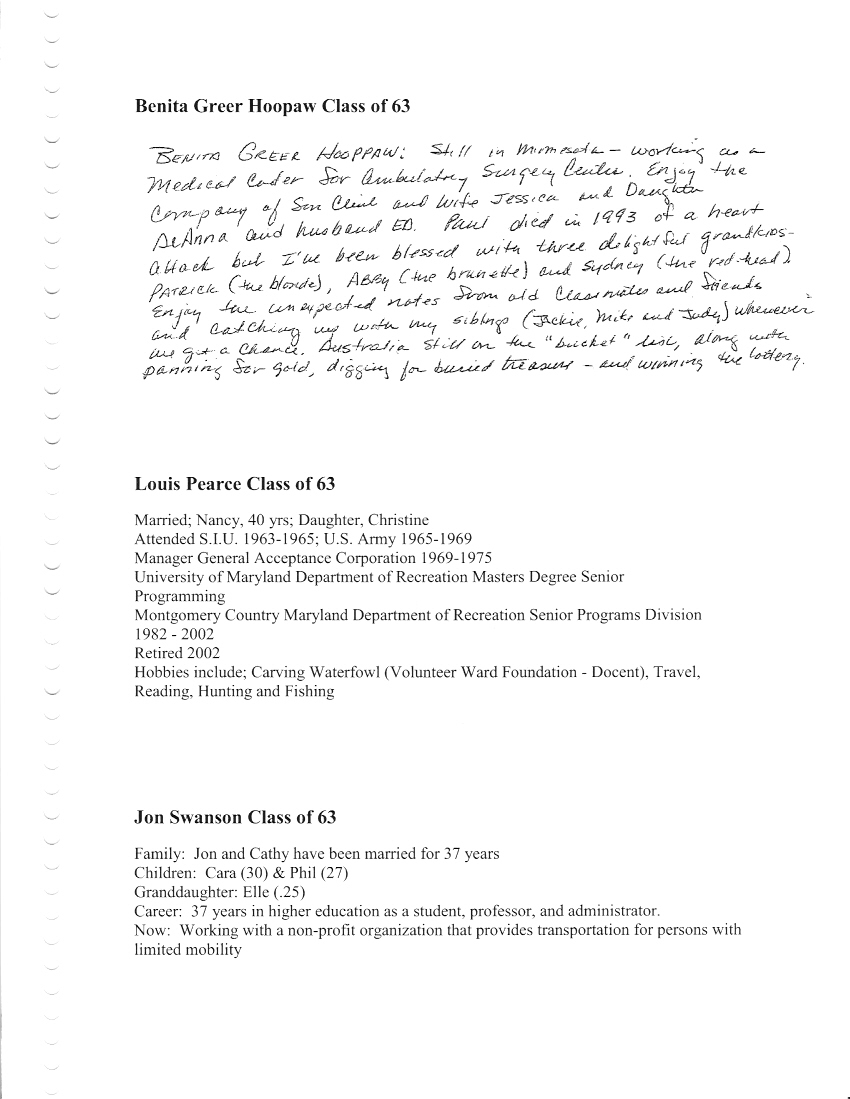 Benita Greer Hoopaw Class of 63
BENITA GREER HOOPPAW: Still in Minnesota – working as a
Medical Coder for Ambulatory Surgery Center. Enjoy the
Company of Son Clint and wife Jessica and Daughter
DeAnna and husband ED. Paul died in 1993 of a heart
attack but I've been blessed with three delightful grandkids-
PATRICK (the blonde), ABBY (the brunette) and Sydney (the red-head)
Enjoy the unexpected notes from old Classmates and friends
and catching up with my siblings (Jackie, Mike and Judy) whenever
we get a chance. Australia still on the "bucket" list, along with
panning for gold, digging for buried treasure – and winning the lottery.
Louis Pearce Class of 63
Married; Nancy, 40 yrs; Daughter, Christine
Attended S.I.U. 1963-1965; U.S. Army 1965-1969
Manager General Acceptance Corporation 1969-1975
University of Maryland Department of Recreation Masters Degree Senior
Programming
Montgomery Country Maryland Department of Recreation Senior Programs Division
1982 - 2002
Retired 2002
Hobbies include; Carving Waterfowl (Volunteer Ward Foundation - Docent), Travel,
Reading, Hunting and Fishing
Jon Swanson Class of 63
Family: Jon and Cathy have been married for 37 years
Children: Cara (30) & Phil (27)
Granddaughter: Elle (.25)
Career: 37 years in higher education as a student, professor, and administrator.
Now: Working with a non-profit organization that provides transportation for persons with
limited mobility